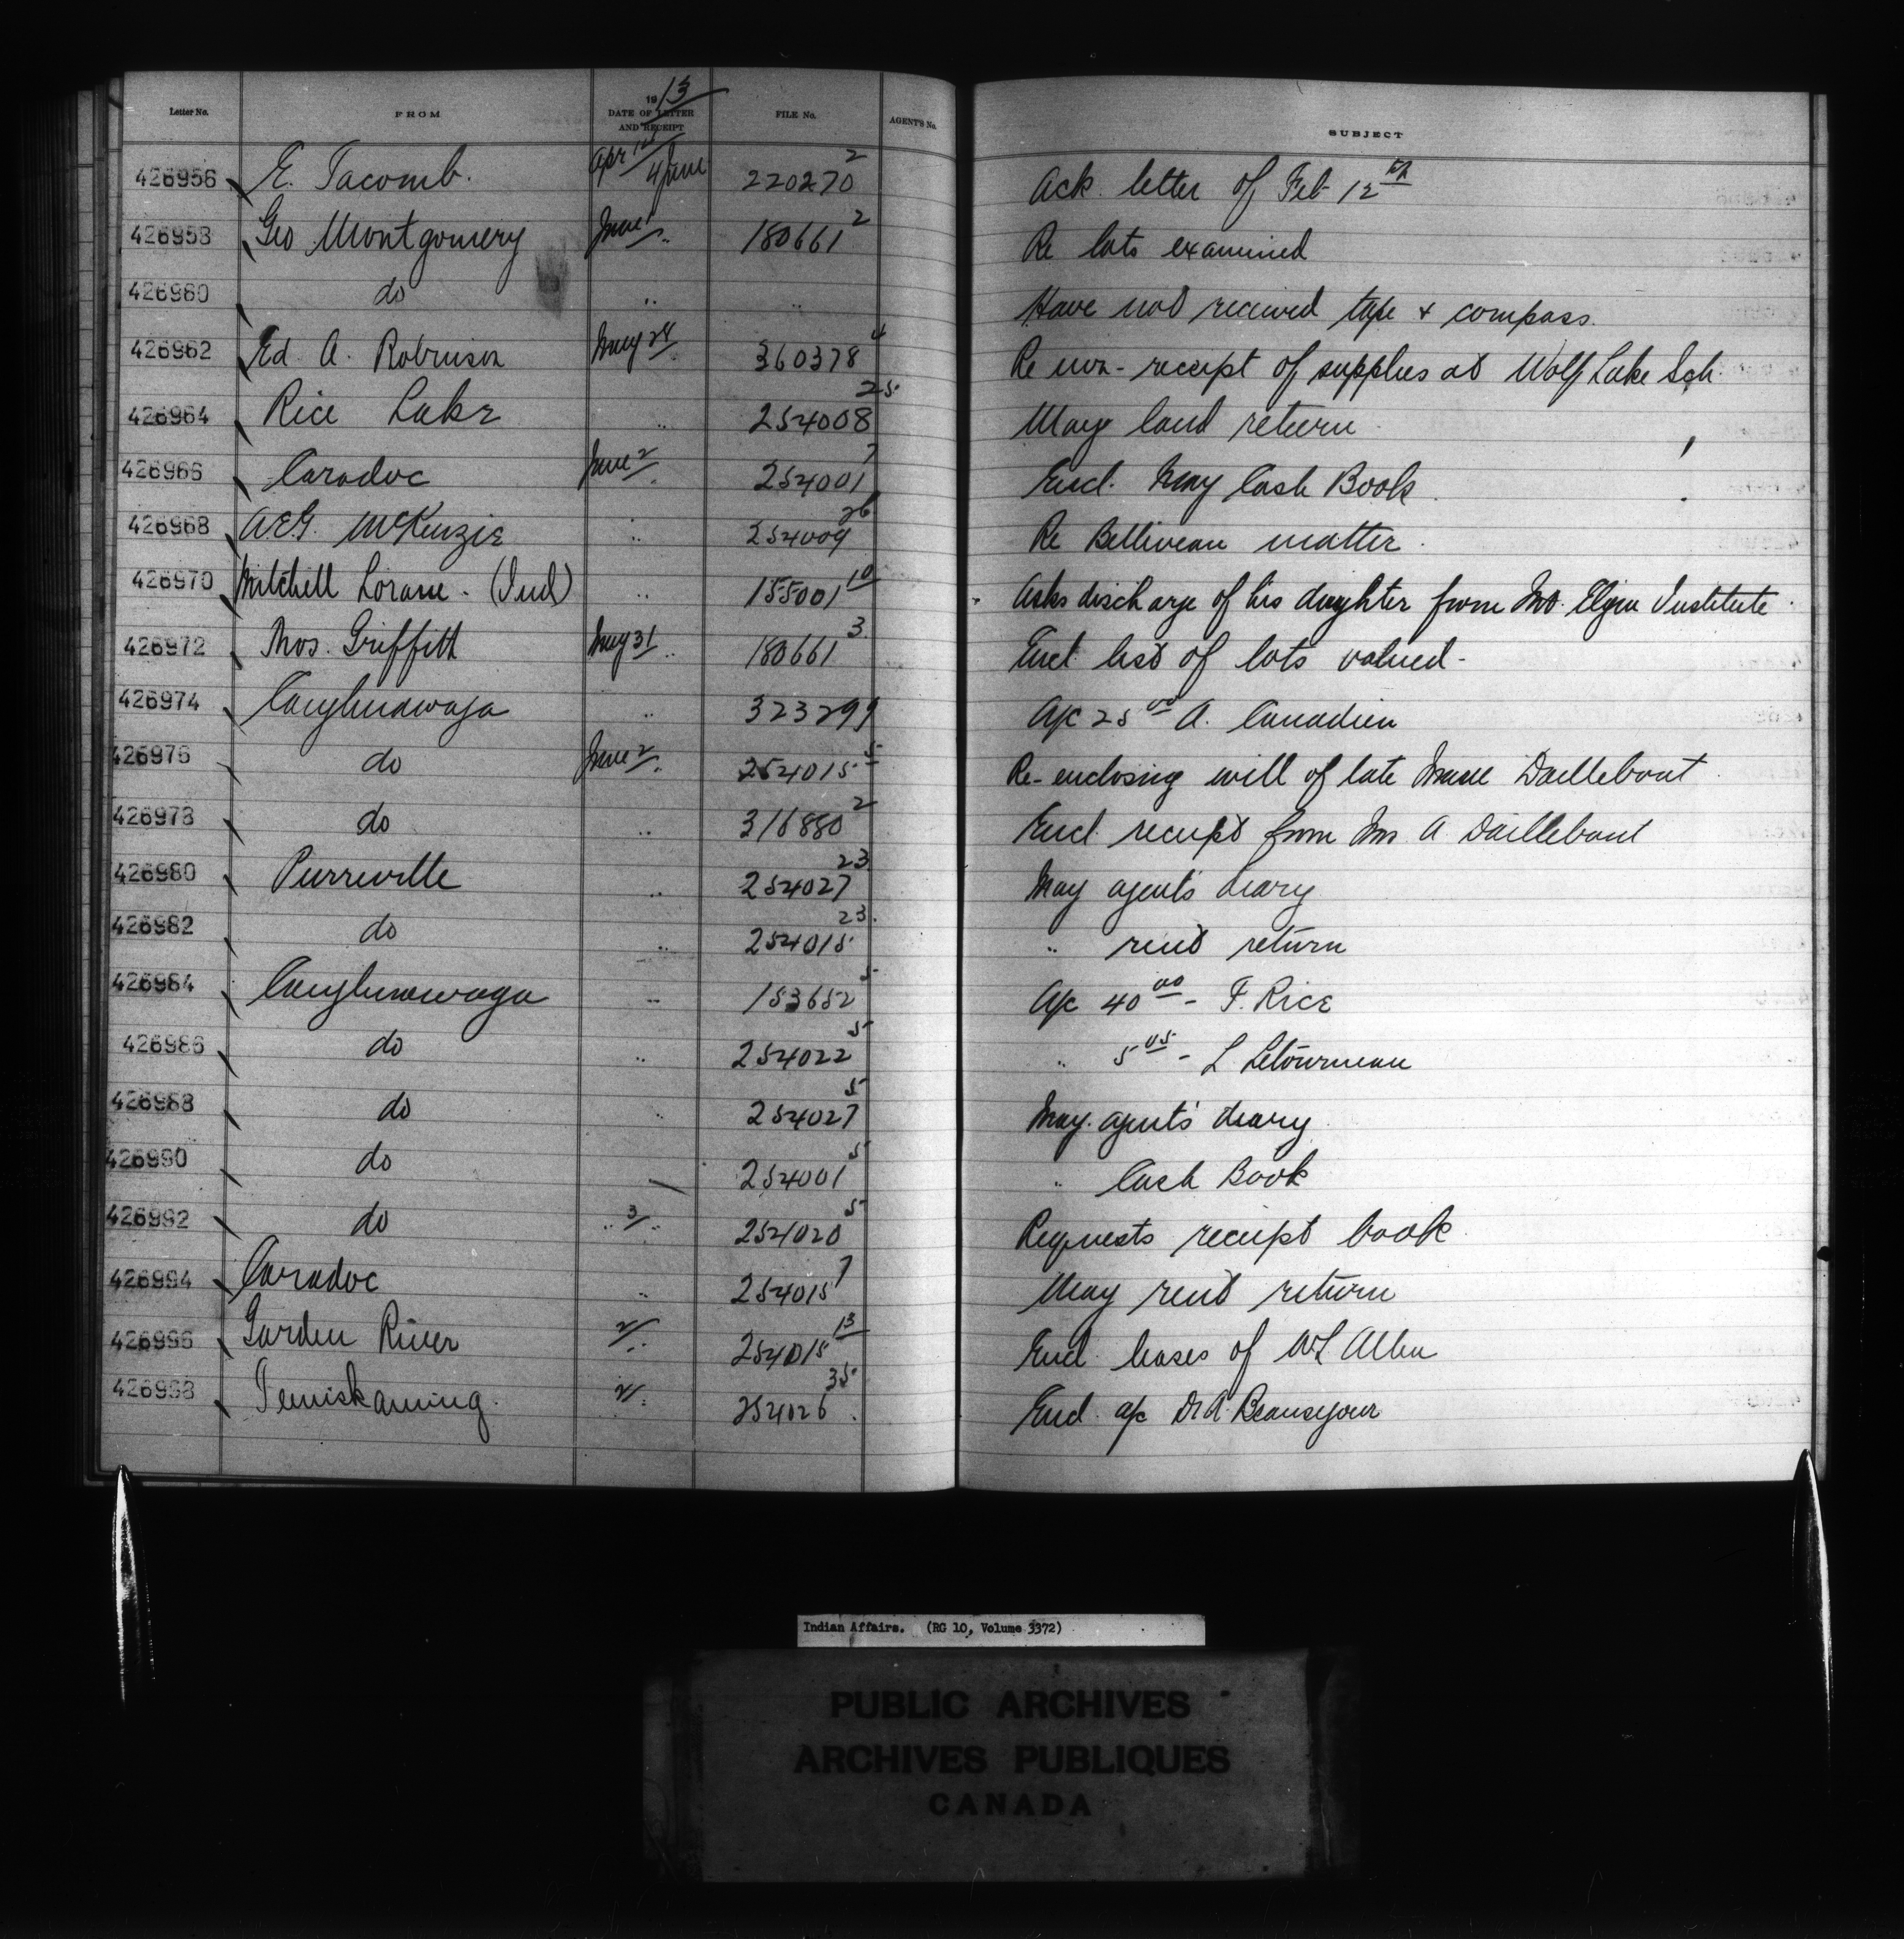 Letter No. FROM 1913 DATE OF LETTER AND RECEIPT FILE No. AGENT'S No. SUBJECT
426956 E. Jacomb. Apr 4 June 220270 2 Ack. letter of Feb 12th
426958 Geo Montgomery June 180661 2 Re lots examined
426960 do " " Have not received tape & compass.
426962 Ed. A. Robinson May 24 " 360378 4 Re non-receipt of supplies at Wolf Lake Sch.
426964 Rice Lake " 254008 25 May land return
426966 Caradoc June 2 " 254001 7 Encl. May Cash Book
426968 A.E.G. McKenzie " 254009 26 Re Belliveau matter.
426970 Mitchell (Ind) " 155001 10 Asks discharge of his daughter from Mt. Elgin Institute
426972 Thos. Griffith May 31 " 180661 3 Encl. list of lots valued-
426974 Caughnawaga " 323299 A/c 25 00 A. Canadien
426976 do June 2 " 254015 5 Re-enclosing will of late Daillebout
426978 do " 316880 2 Encl. receipt from A. Daillebout
426980 Pierreville " 254027 23 May agent's diary
426982 do " 254015 23 " rent return
426984 Caughnawaga " 153652 5 A/c 40 00 - F. Rice
426986 do " 254022 5 " 5 05 - L Letourneau
426988 do " 254027 5 May agent's diary
426990 do 254001 5 " Cash Book
426992 do " 3 " 254020 5 Requests receipt book
426994 Caradoc " 254015 7 May rent return
426996 Garden River 2 " 254015 13 Encl. leases of Allen
426998 Temiskaming 254026 35 Encl. a/c Dr A. Beausejour
Indian Affairs. (RG 10, Volume 3372)
PUBLIC ARCHIVES
ARCHIVES PUBLIQUES
CANADA